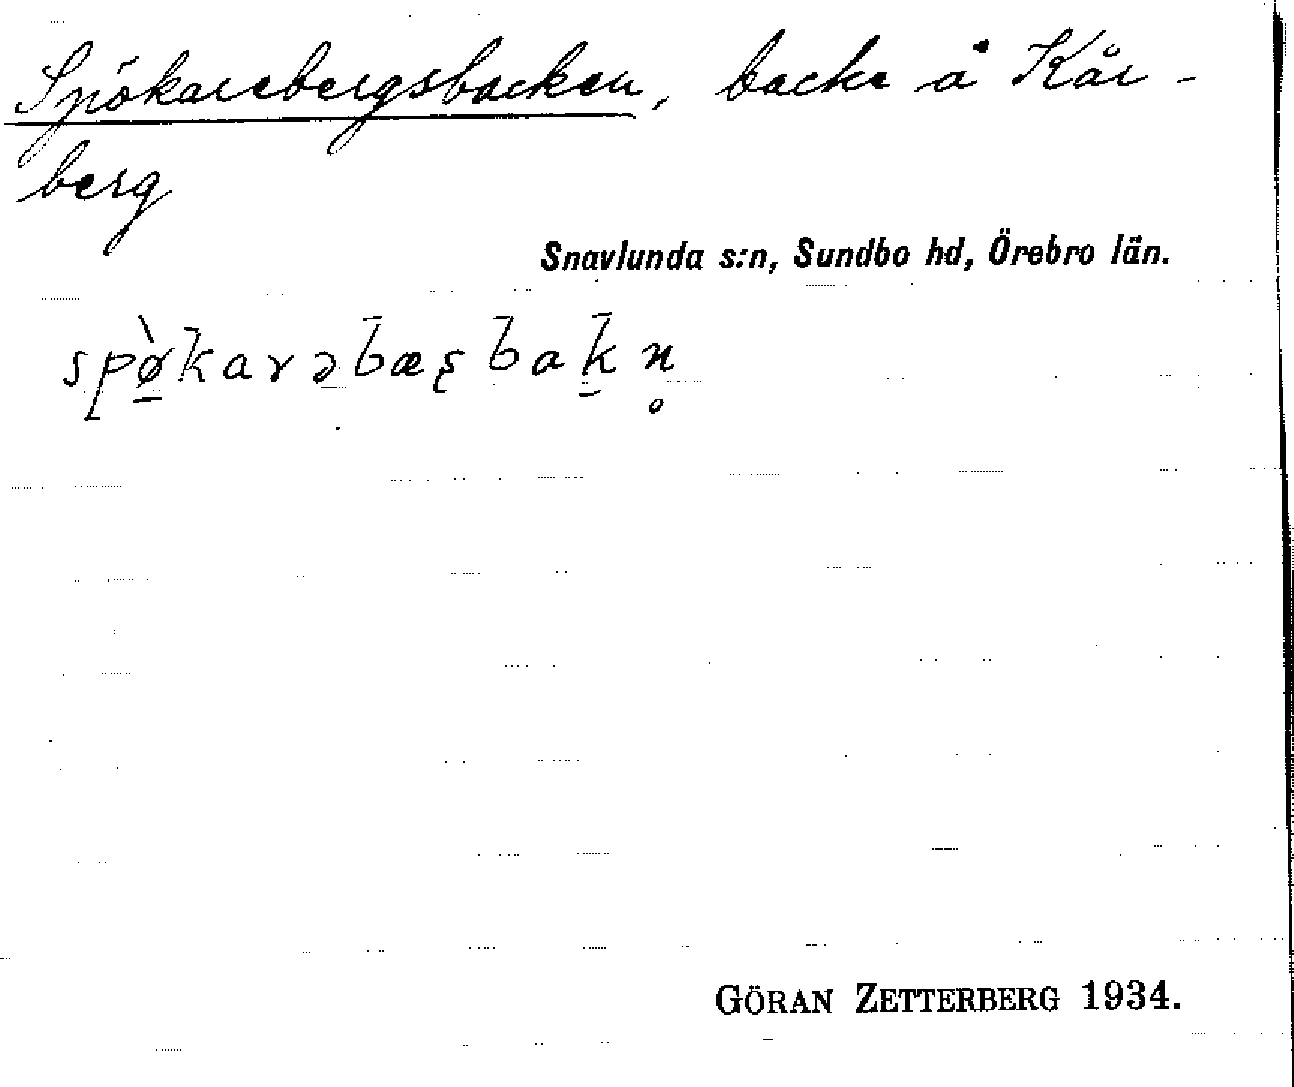 Spökarebergsbacken, backe å Kår-
berg
Snavlunda s:n, Sundbo hd, Örebro län.
spø̀karəbæʂbakn̥
GÖRAN ZETTERBERG 1934.